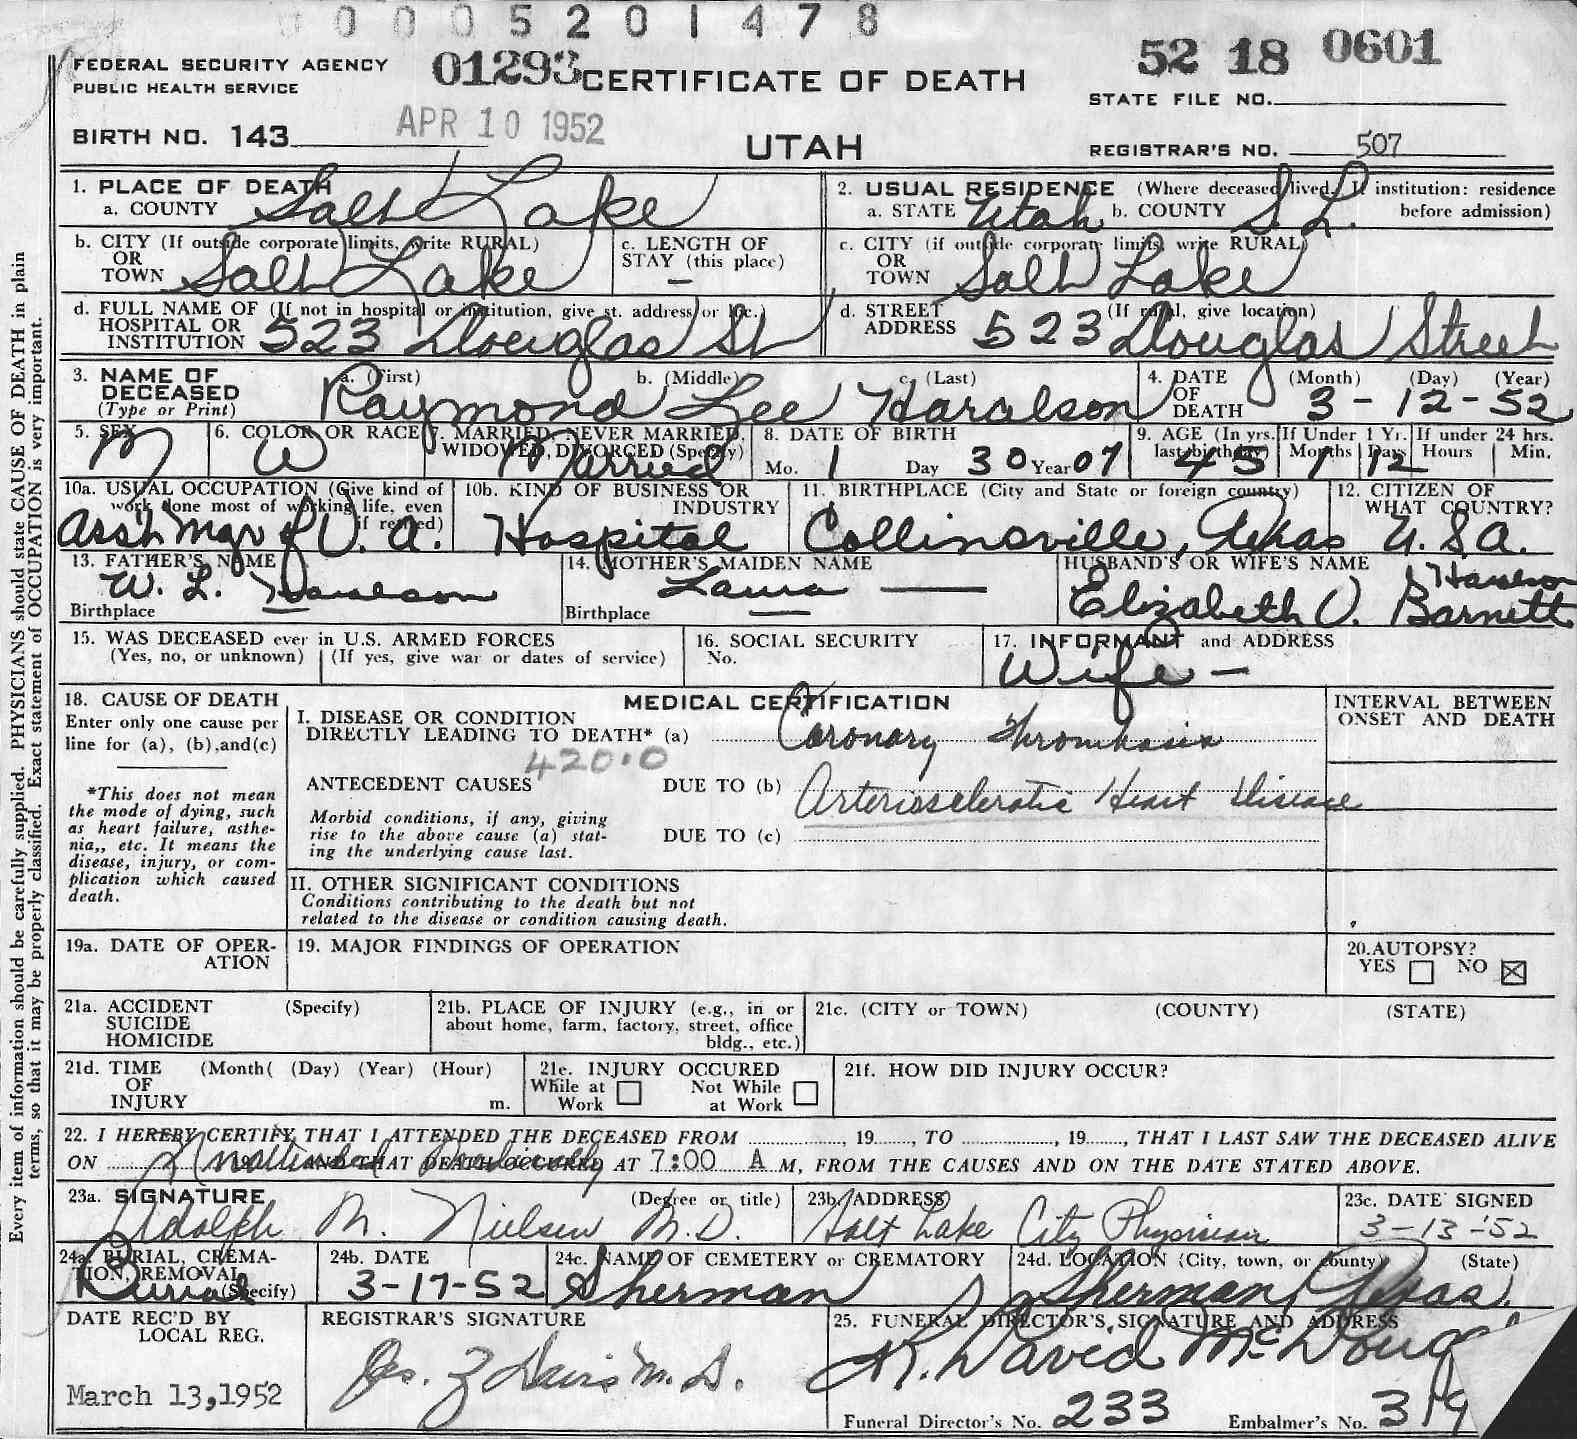 0 0 0 5 2 0 1 4 7 8
FEDERAL SECURITY AGENCY
PUBLIC HEALTH SERVICE
01293 CERTIFICATE OF DEATH
52 18 0601
STATE FILE NO.
BIRTH NO. 143
APR 10 1952
UTAH
REGISTRAR'S NO. 507
1. PLACE OF DEATH
a. COUNTY Salt Lake
2. USUAL RESIDENCE (Where deceased lived. If institution: residence before admission)
a. STATE Utah b. COUNTY S. L.
b. CITY (If outside corporate limits, write RURAL)
OR
TOWN Salt Lake
c. LENGTH OF
STAY (this place) –
c. CITY (if outside corporate limits, write RURAL)
OR
TOWN Salt Lake
d. FULL NAME OF (If not in hospital or institution, give st. address or loc.)
HOSPITAL OR
INSTITUTION 523 Douglas St
d. STREET (If rural, give location)
ADDRESS 523 Douglas Street
3. NAME OF
DECEASED
(Type or Print)
a. (First) b. (Middle) c. (Last)
Raymond Lee Haralson
4. DATE
OF
DEATH
(Month) (Day) (Year)
3 - 12 - 52
5. SEX
M
6. COLOR OR RACE
W
7. MARRIED, NEVER MARRIED,
WIDOWED, DIVORCED (Specify)
Married
8. DATE OF BIRTH
Mo. 1 Day 30 Year 07
9. AGE (In yrs.
last birthday) 45
If Under 1 Yr.
Months 1 Days 12
If under 24 hrs.
Hours Min.
10a. USUAL OCCUPATION (Give kind of
work done most of working life, even
if retired)
Ass't Mgr of V. A.
10b. KIND OF BUSINESS OR
INDUSTRY
Hospital
11. BIRTHPLACE (City and State or foreign country)
Collinsville, Texas
12. CITIZEN OF
WHAT COUNTRY?
U. S. A.
13. FATHER'S NAME
W. L. Haralson
Birthplace –
14. MOTHER'S MAIDEN NAME
Laura —
Birthplace –
HUSBAND'S OR WIFE'S NAME
Elizabeth V. Barnett Haralson
15. WAS DECEASED ever in U.S. ARMED FORCES
(Yes, no, or unknown) (If yes, give war or dates of service)
16. SOCIAL SECURITY
No.
17. INFORMANT and ADDRESS
Wife –
18. CAUSE OF DEATH
Enter only one cause per
line for (a), (b), and (c)
*This does not mean
the mode of dying, such
as heart failure, asthe-
nia,, etc. It means the
disease, injury, or com-
plication which caused
death.
MEDICAL CERTIFICATION
INTERVAL BETWEEN
ONSET AND DEATH
I. DISEASE OR CONDITION
DIRECTLY LEADING TO DEATH* (a) Coronary Thrombosis
420.0
ANTECEDENT CAUSES DUE TO (b) Arteriosclerotic Heart Disease
Morbid conditions, if any, giving
rise to the above cause (a) stat-
ing the underlying cause last.
DUE TO (c)
II. OTHER SIGNIFICANT CONDITIONS
Conditions contributing to the death but not
related to the disease or condition causing death.
19a. DATE OF OPER-
ATION
19. MAJOR FINDINGS OF OPERATION
20. AUTOPSY?
YES ☐ NO ☒
21a. ACCIDENT (Specify)
SUICIDE
HOMICIDE
21b. PLACE OF INJURY (e.g., in or
about home, farm, factory, street, office
bldg., etc.)
21c. (CITY or TOWN) (COUNTY) (STATE)
21d. TIME (Month( (Day) (Year) (Hour)
OF
INJURY m.
21e. INJURY OCCURED
While at Work ☐ Not While at Work ☐
21f. HOW DID INJURY OCCUR?
22. I HEREBY CERTIFY THAT I ATTENDED THE DECEASED FROM ............, 19......, TO ............, 19......, THAT I LAST SAW THE DECEASED ALIVE
ON Unattended 19 AND THAT DEATH OCCURED AT 7:00 A M, FROM THE CAUSES AND ON THE DATE STATED ABOVE.
23a. SIGNATURE (Degree or title)
Adolph M. Nielsen M. D.
23b. ADDRESS
Salt Lake City Physician
23c. DATE SIGNED
3-13-'52
24a. BURIAL, CREMA-
TION, REMOVAL
(Specify)
Burial
24b. DATE
3-17-52
24c. NAME OF CEMETERY or CREMATORY
Sherman
24d. LOCATION (City, town, or county) (State)
Sherman, Texas.
DATE REC'D BY
LOCAL REG.
March 13, 1952
REGISTRAR'S SIGNATURE
Jas. Z Davis M. D.
25. FUNERAL DIRECTOR'S SIGNATURE AND ADDRESS
R. David McDoug
Funeral Director's No. 233 Embalmer's No. 319
Every item of information should be carefully supplied. PHYSICIANS should state CAUSE OF DEATH in plain
terms, so that it may be properly classified. Exact statement of OCCUPATION is very important.